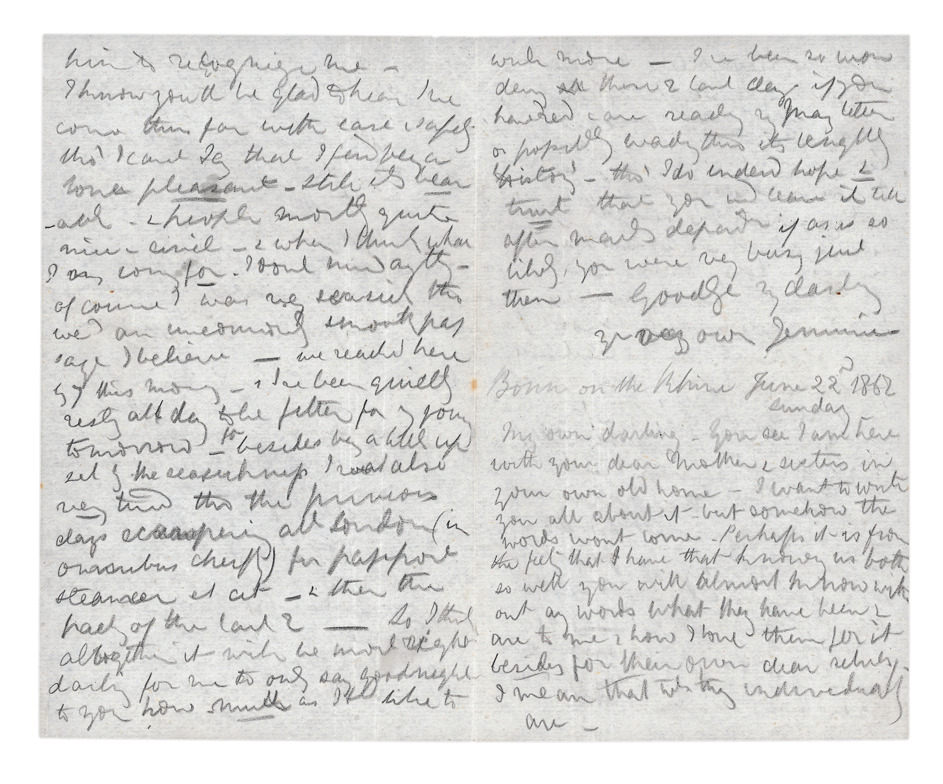 him to recognize me –
I know you'll be glad to hear I've
come thus far with ease & safely
tho' I cant say that I find being
alone pleasant – still its bear
-able & people mostly quite
nice & civil – & when I think what
I am coming for. I dont mind anything –
of course I was very seasick tho
we'd an uncommonly smooth pas
sage I believe — we reached here
by 7 this morng – & I've been quietly
resting all day to be fitter for my journey
tomorrow – besides being a little up
set by the seasickness I was also
very tired thro the previous
days scampering all London (in
omnibus chiefly) for passport
steamer et cet – & then the
packing of the last 2 — So I think
altogether it will be more right
darling for me to only say goodnight
to you how much as I'd like to
write more — I've been so won
dering these 2 last days if you
have recd & are reading my May letter
or possibly reading thro its lengthy
history! – tho' I do indeed hope &
trust that you will leave it till
after mails departure if as is so
likely, you were very busy just
then — Goodbye my darling
yr very own Jemima
Bonn on the Rhine June 22d 1862
Sunday
My own darling – You see I am here
with your dear Mother & sisters in
your own old home – I want to write
you all about it but somehow the
words wont come – Perhaps it is from
the feeling that I have that knowing us both
so well you will almost know with
out any words what they have been &
are to me & how I love them for it
besides for their own dear selves –
I mean that what they individually
are –